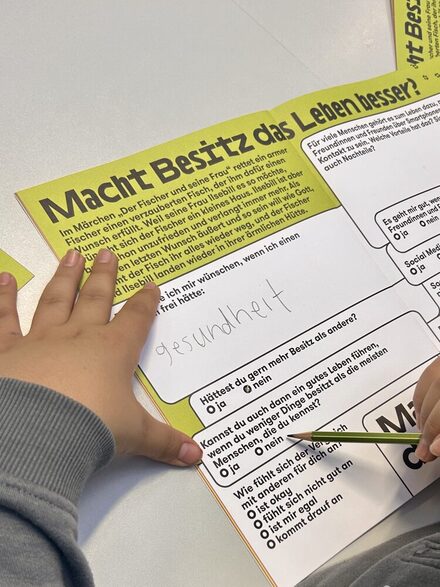 Macht Besitz das Leben besser?
Im Märchen „Der Fischer und seine Frau" rettet ein armer
Fischer einen verzauberten Fisch, der ihm dafür einen
Wunsch erfüllt. Weil seine Frau Ilsebill es so möchte,
wünscht sich der Fischer ein kleines Haus. Ilsebill ist aber
schon unzufrieden und verlangt immer mehr. Als
letzten Wunsch äußert und so sein will wie Gott,
nimmt der Fisch ihr alles wieder weg, und der Fischer
und Ilsebill landen wieder in ihrer ärmlichen Hütte.
ich mir wünschen, wenn ich einen
frei hätte:
gesundheit
Hättest du gern mehr Besitz als andere?
ja nein
Kannst du auch dann ein gutes Leben führen,
wenn du weniger Dinge besitzt als die meisten
Menschen, die du kennst?
ja nein
Wie fühlt sich der Vergleich
mit anderen für dich an?
ist okay
fühlt sich nicht gut an
ist mir egal
kommt drauf an
Für viele Menschen gehört es zum Leben dazu,
Freundinnen und Freunden über Smartphone
Kontakt zu sein. Welche Vorteile hat das?
auch Nachteile?
Es geht mir gut, wenn
Freundinnen und
ja nein
Social Med
ja
Social
ja